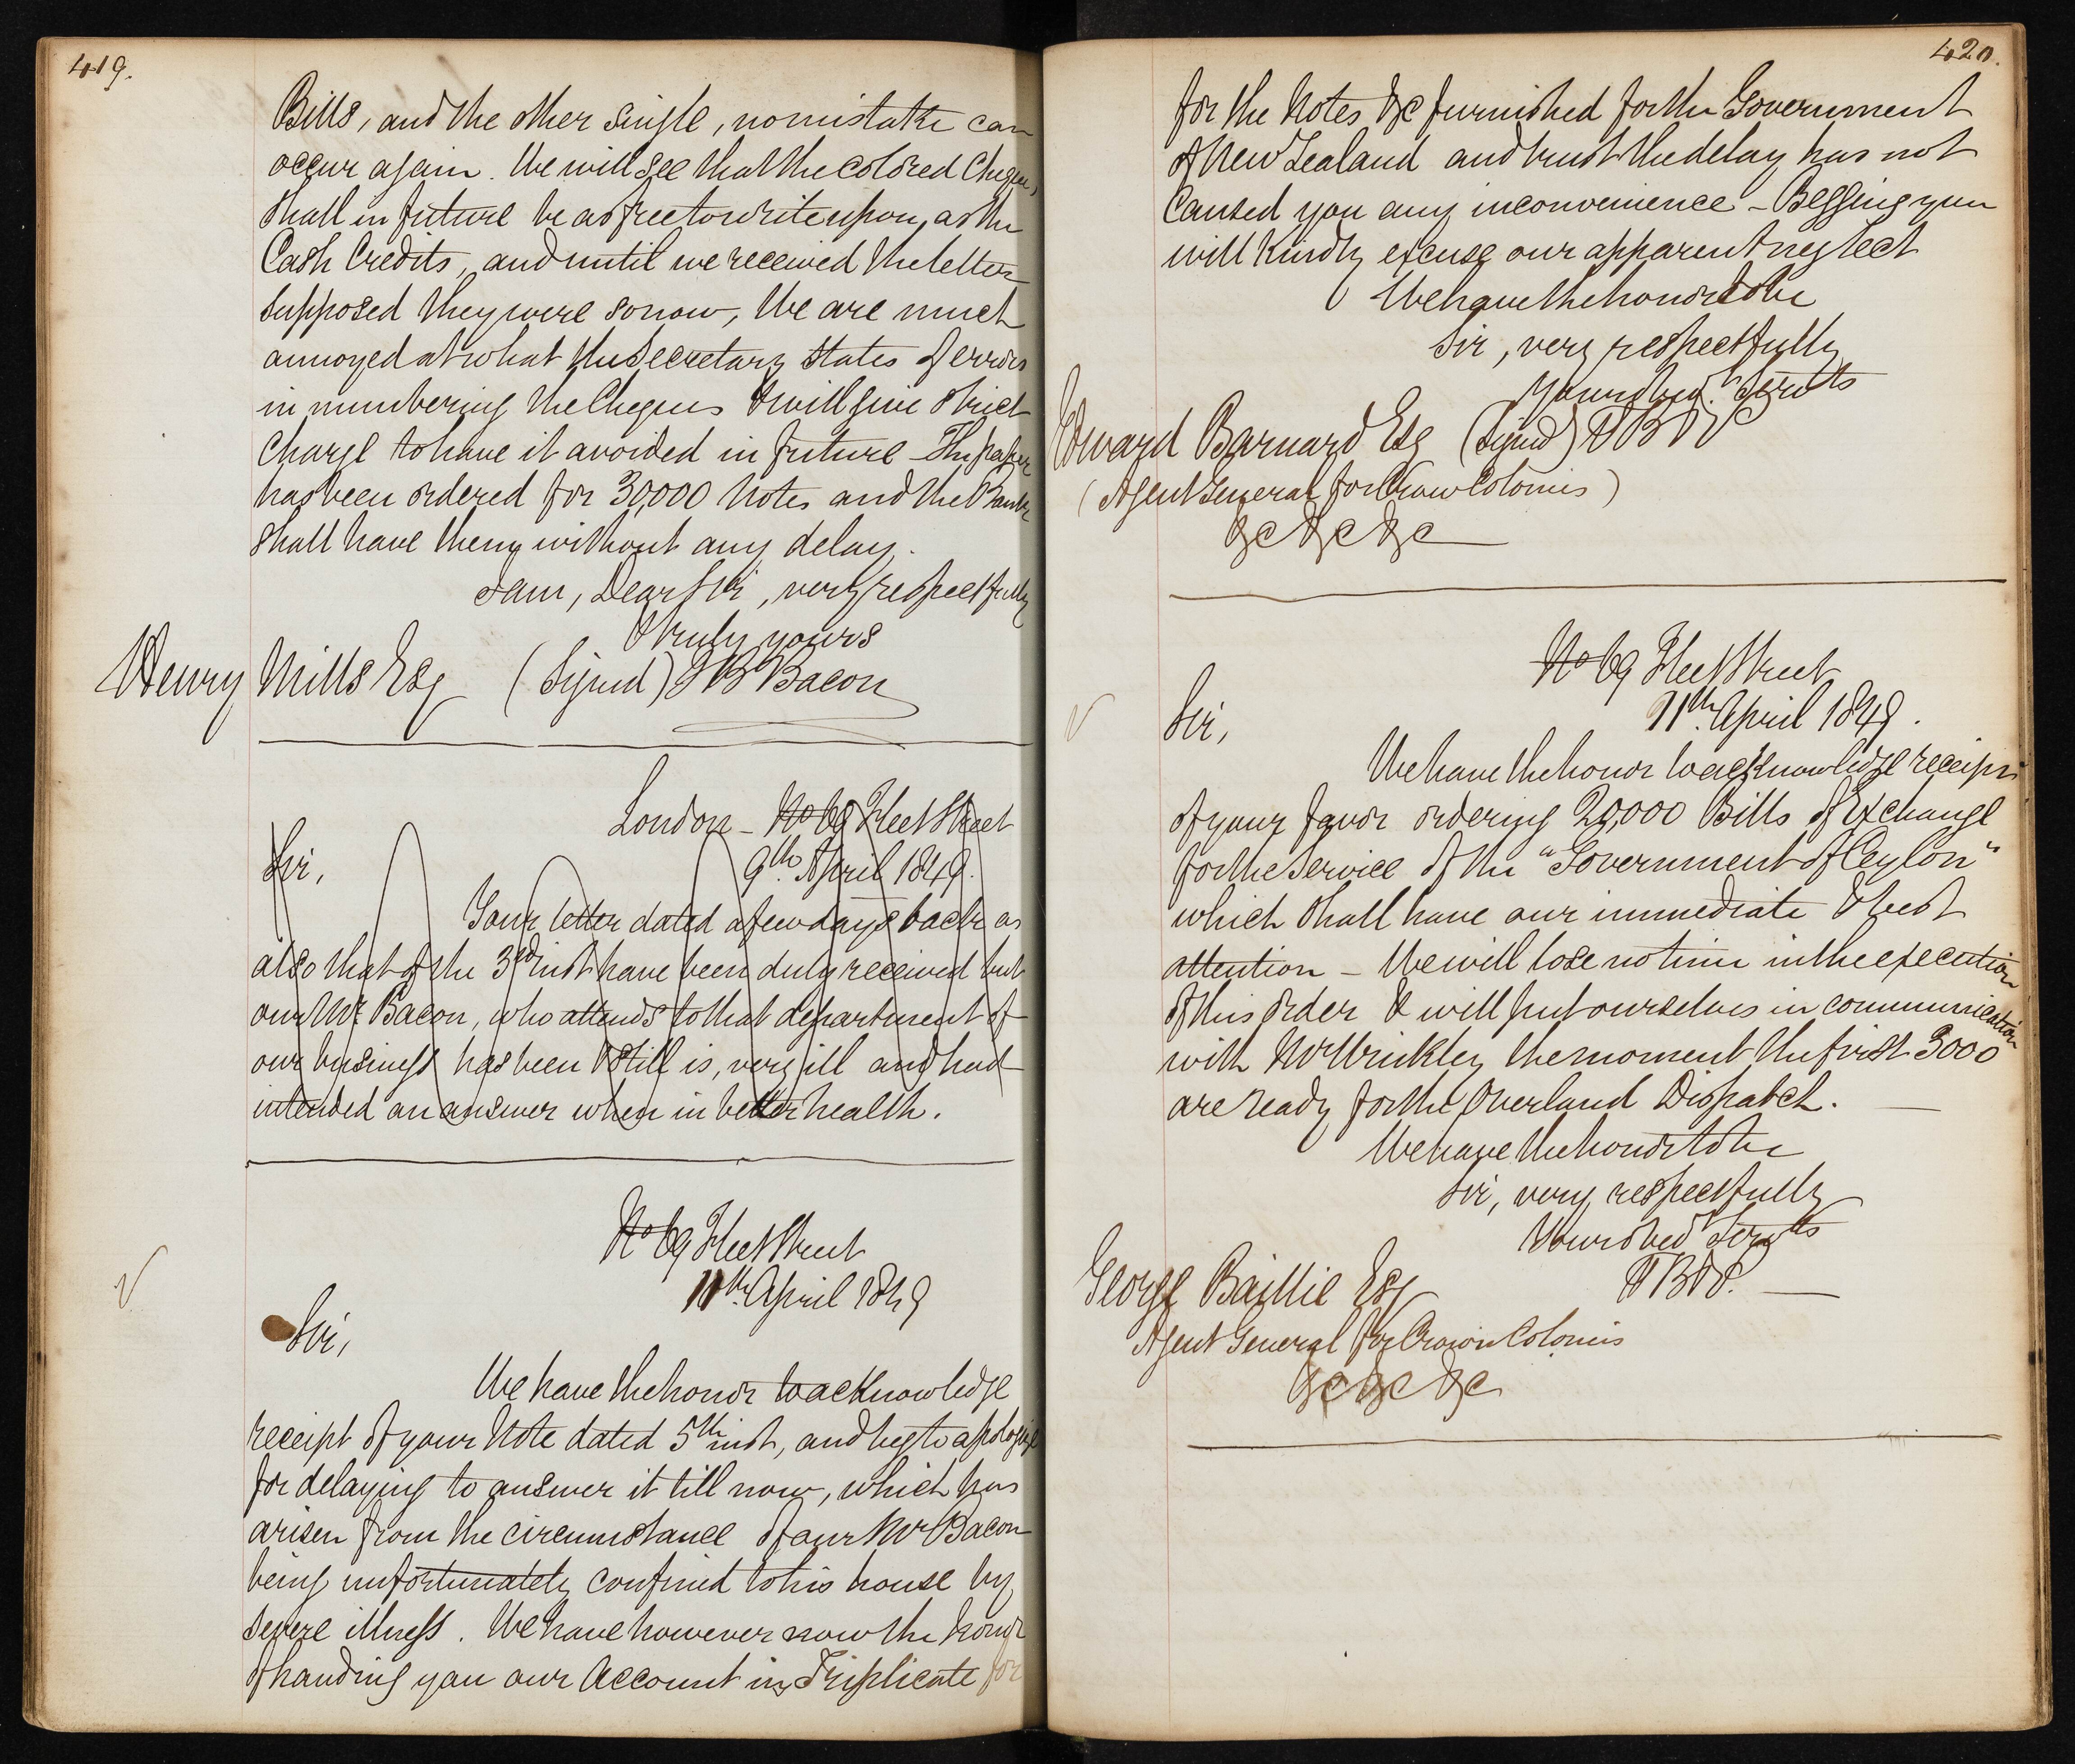 419.
Bills, and the other single, no mistake can
occur again. We will see that the colored Cheques,
shall in future be as free to write upon, as the
Cash Credits, and until we received the letter
supposed they were so now, We are much
annoyed at what the Secretary states of errors
in numbering the Cheques & will give strict
charge to have it avoided in future – The paper
has been ordered for 30,000 Notes and the Bank
shall have them without any delay.
I am, Dear Sir, very respectfully
& truly yours
Henry Mills Esq (Signed) J B Bacon
London – No 69 Fleet Street
9th. April 1849.
Sir,
Your letter dated a few days back as
also that of the 3rd inst have been duly received but
our Mr. Bacon, who attends to that department of
our business has been & still is, very ill and had
intended an answer when in better health.
No 69 Fleet Street
11th. April 1849
Sir,
We have the honor to acknowledge
receipt of your Note dated 5th inst, and beg to apologize
for delaying to answer it till now, which has
arisen from the circumstance of our Mr Bacon
being unfortunately confined to his house by
severe illness. We have however now the honor
of handing you our Account in Triplicate for
420.
for the Notes &c furnished for the Government
of New Zealand and trust the delay has not
caused you any inconvenience – Begging you
will kindly excuse our apparent neglect
We have the honor to be
Sir, very respectfully
Your obed. Servts
Edward Barnard Esq (Signed) P B & P
(Agent General for Crown Colonies)
&c &c &c
No 69 Fleet Street
11th. April 1849.
Sir,
We have the honor to acknowledge receipt
of your favor ordering 20,000 Bills of Exchange
for the service of the "Government of Ceylon"
which shall have our immediate & best
attention – We will lose no time in the execution
of this order & will put ourselves in communication
with Mr Brinkley the moment the first 3000
are ready for the Overland Dispatch.
We have the honor to be
Sir, very respectfully
Your obed Servts
P B & P.
George Baillie Esq
Agent General for Crown Colonies
&c &c &c